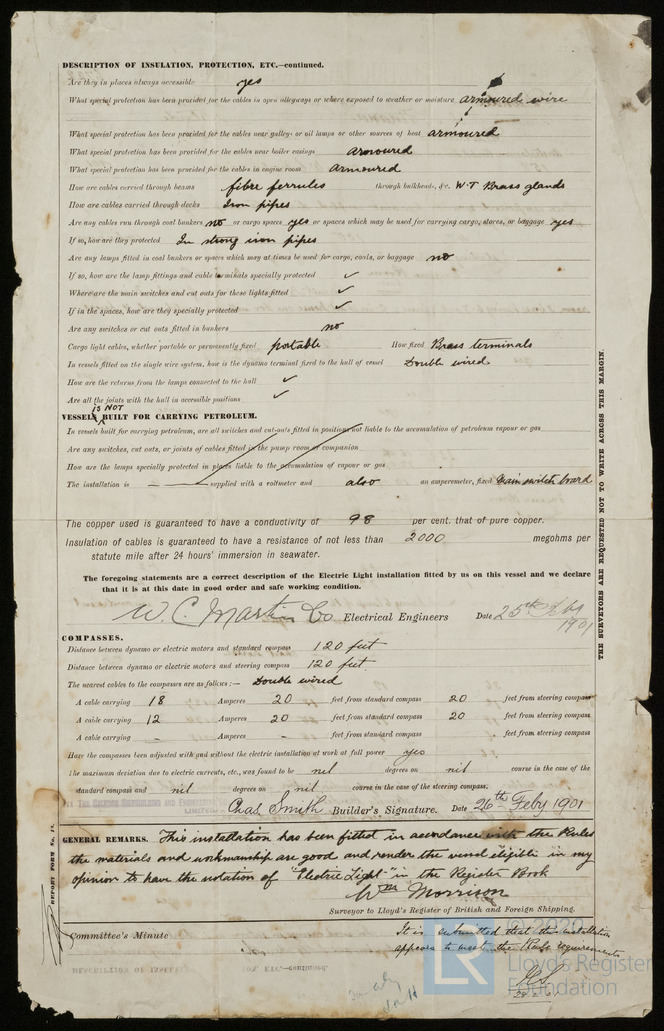 DESCRIPTION OF INSULATION, PROTECTION, ETC.—continued.
Are they in places always accessible yes
What special protection has been provided for the cables in open alleyways or where exposed to weather or moisture armoured wire
What special protection has been provided for the cables near galleys or oil lamps or other sources of heat armoured
What special protection has been provided for the cables near boiler casings armoured
What special protection has been provided for the cables in engine room armoured
How are cables carried through beams fibre ferrules through bulkheads, &c. W.T Brass glands
How are cables carried through decks Iron pipes
Are any cables run through coal bunkers no or cargo spaces yes or spaces which may be used for carrying cargo, stores, or baggage yes
If so, how are they protected In strong iron pipes
Are any lamps fitted in coal bunkers or spaces which may at times be used for cargo, coals, or baggage no
If so, how are the lamp fittings and cable terminals specially protected ✓
Where are the main switches and cut outs for these lights fitted ✓
If in the spaces, how are they specially protected ✓
Are any switches or cut outs fitted in bunkers no
Cargo light cables, whether portable or permanently fixed portable How fixed Brass terminals
In vessels fitted on the single wire system, how is the dynamo terminal fixed to the hull of vessel Double wired
How are the returns from the lamps connected to the hull ✓
Are all the joints with the hull in accessible positions ✓
is NOT
VESSELS BUILT FOR CARRYING PETROLEUM.
In vessels built for carrying petroleum, are all switches and cut-outs fitted in positions not liable to the accumulation of petroleum vapour or gas
Are any switches, cut outs, or joints of cables fitted in the pump room or companion
How are the lamps specially protected in places liable to the accumulation of vapour or gas
The installation is — supplied with a voltmeter and also an amperemeter, fixed Main switch board
The copper used is guaranteed to have a conductivity of 98 per cent. that of pure copper.
Insulation of cables is guaranteed to have a resistance of not less than 2000 megohms per
statute mile after 24 hours' immersion in seawater.
The foregoing statements are a correct description of the Electric Light installation fitted by us on this vessel and we declare
that it is at this date in good order and safe working condition.
W. C. Martin Co Electrical Engineers Date 25th Feby
1901
COMPASSES.
Distance between dynamo or electric motors and standard compass 120 feet
Distance between dynamo or electric motors and steering compass 120 feet
The nearest cables to the compasses are as follows:— Double wired
A cable carrying 18 Amperes 20 feet from standard compass 20 feet from steering compass
A cable carrying 12 Amperes 20 feet from standard compass 20 feet from steering compass
A cable carrying - Amperes - feet from standard compass feet from steering compass
Have the compasses been adjusted with and without the electric installation at work at full power yes
The maximum deviation due to electric currents, etc., was found to be nil degrees on nil course in the case of the
standard compass and nil degrees on nil course in the case of the steering compass.
Chas. Smith Builder's Signature. Date 26th Feby 1901
GENERAL REMARKS. This installation has been fitted in accordance with the Rules
the materials and workmanship are good and render the vessel eligible in my
opinion to have the notation of "Electric Light" in the Register Book
Wm Morrison
Surveyor to Lloyd's Register of British and Foreign Shipping.
Committee's Minute
It is submitted that this installation
appears to meet the Rule requirements
THE SURVEYORS ARE REQUESTED NOT TO WRITE ACROSS THIS MARGIN.
REPORT FORM No. 11.
LR
Lloyd's Register
Foundation